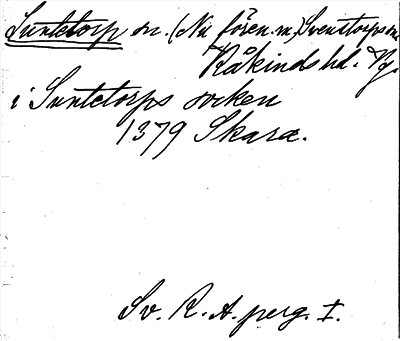 Suntetorp sn. (Nu fören. m. Sventorps sn.)
Kåkinds hd. Vg.
i Suntetorps socken
1379 Skara.
Sv. R. A. perg. I.